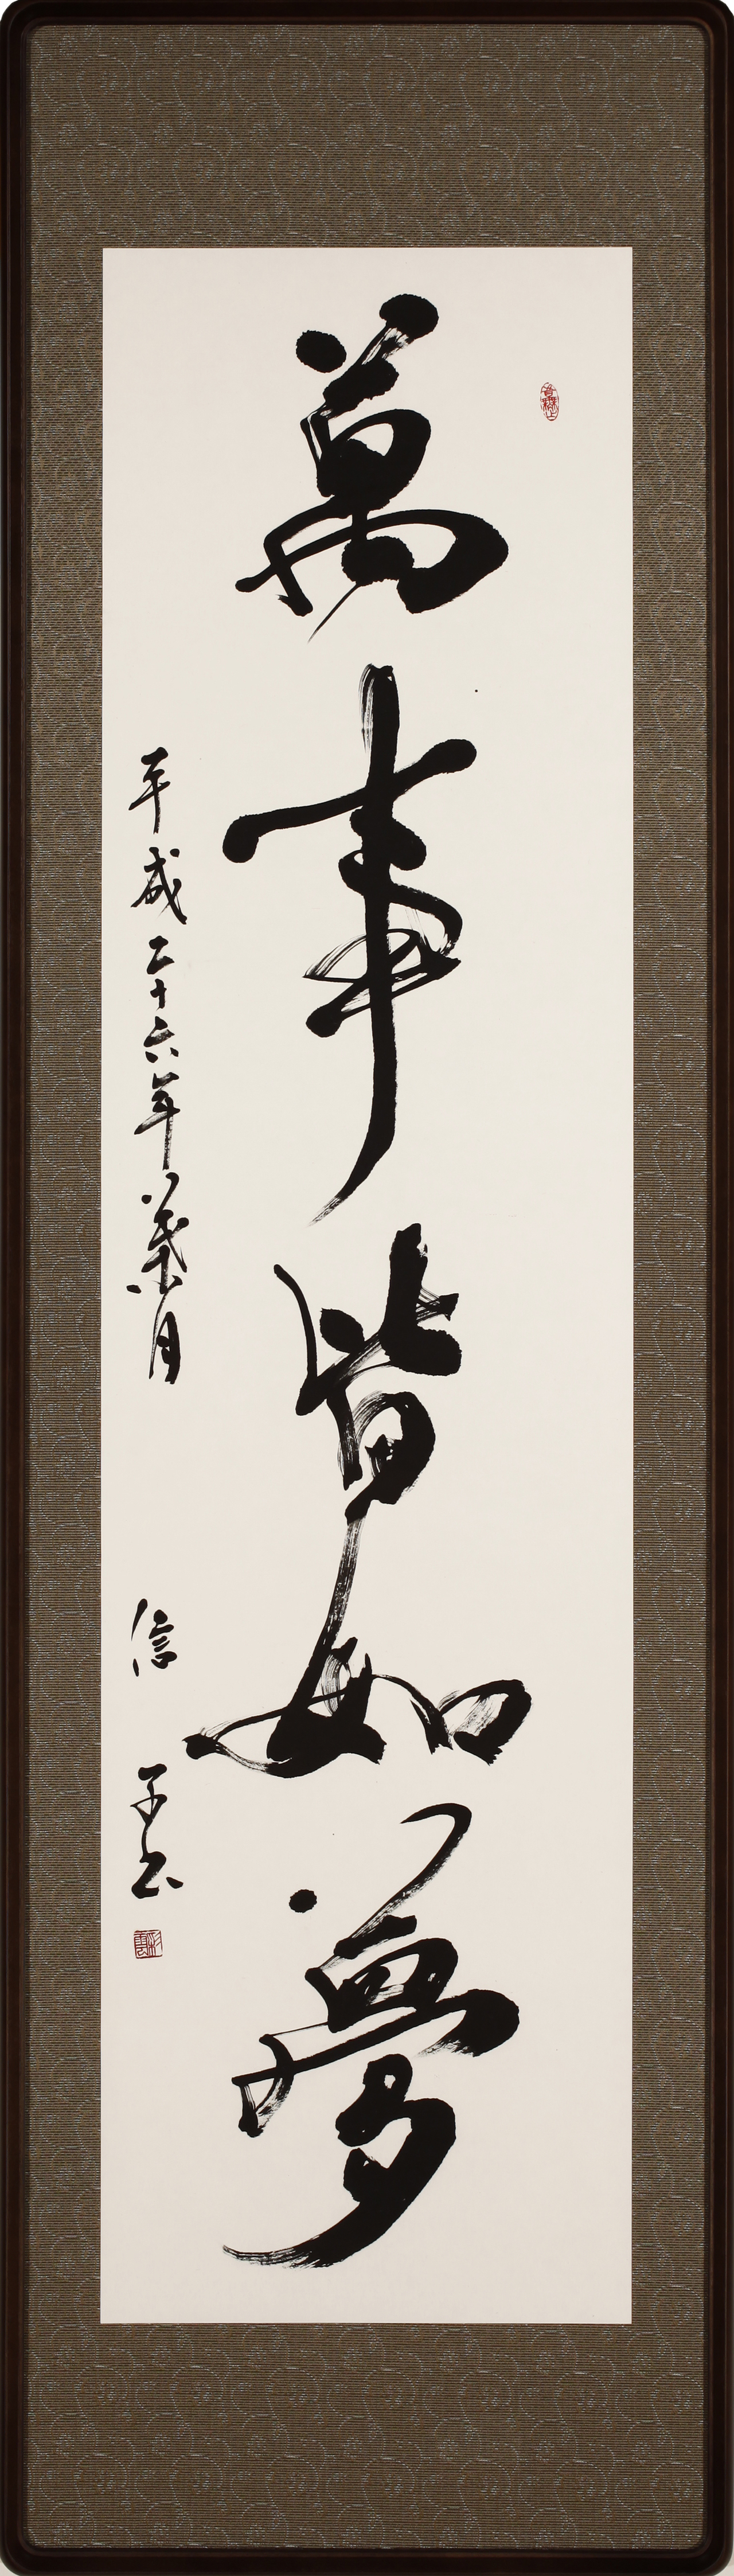 萬事皆如夢
平成二十六年葉月
信子書